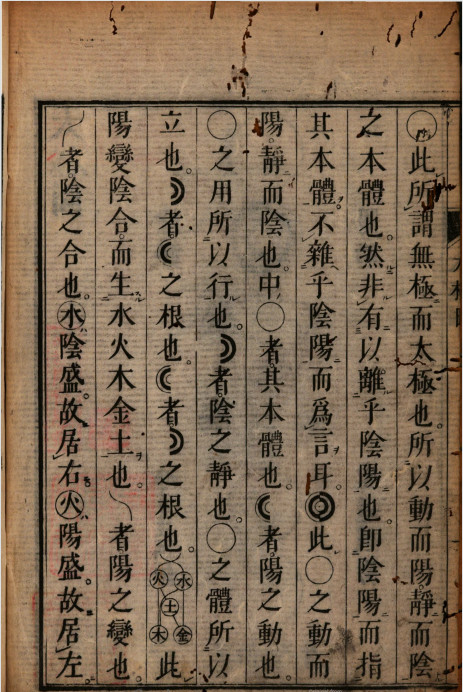 〇此所謂無極而太極也。所以動而陽靜而陰
之本體也。然非有以離乎陰陽也。卽陰陽而指
其本體。不雜乎陰陽而爲言耳。◎此〇之動而
陽。靜而陰也。中〇者其本體也。☾者陽之動也
〇之用所以行也。☽者陰之靜也。〇之體所以
立也。☽者☾之根也。☾者☽之根也。火水土木金此
陽變陰合。而生水火木金土也。㇏者陽之變也
㇏者陰之合也。㊌陰盛。故居右。㊋陽盛。故居左。